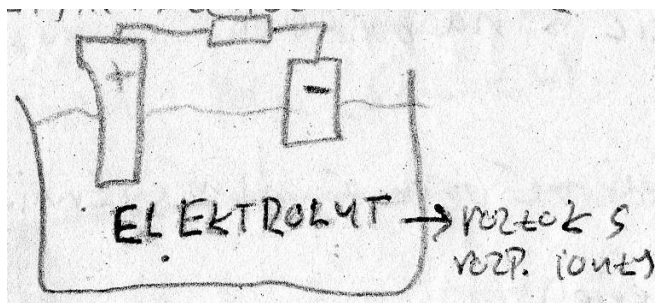 +
-
ELEKTROLYT → roztok s
rozp. ionty